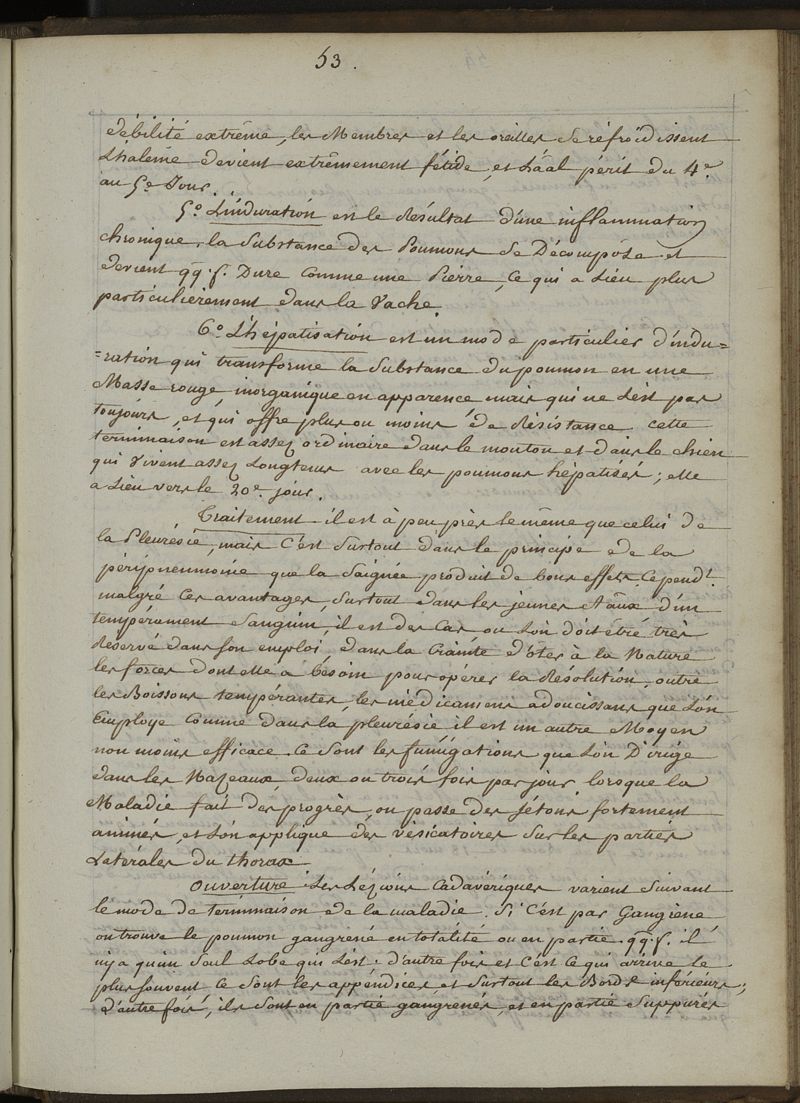 53.
débilité extrême, les Membres et les oreilles se réfroidissent
L'haleine devient extrêmement fétide, et L'aal périt du 4e.
au 5e Jour.
5º L'induration est le Résultat d'une inflammation
chronique, la Substance des Poumons se Décompose et
devient qq. f. Dure comme une Pierre, Ce qui a Lieu plus
particulièrement dans la Vache.
6º L'hépatisation est un mode particulier d'indu=
=ration qui transforme la Substance du poumon en une
Masse rouge, inorganique en apparence mais qui ne L'est pas
toujours, et qui offre plus ou moins de Résistance cette
terminaison est assez ordinaire dans le mouton et dans le chien
qui Vivent assez Longtems avec les poumons hépatisés; elle
a Lieu vers le 20e. jour.
Traitement il est à peu près le même que celui de
la Pleurésie, mais C'est Surtout dans le principe de la
péripneumonie que la Saignée produit de bons effets. Cependt.
malgré Ces avantages, Surtout dans les jeunes Aaux d'un
tempérament Sanguin, il est des Cas ou L'on doit être très
Réservé dans son emploi, dans la Crainte d'ôter à la Nature
les forces dont elle a bésoin pour opérer la Résolution, outre
les Boissons tempérantes, les médicamens adoucissans que L'on
Employe Comme dans la pleurésie il est un autre Moyen
non moins efficace. Ce Sont les fumigations que L'on Dirige
dans les Nazeaux, deux ou trois fois par jour. lorsque la
Maladie fait des progrès, on passe des sétons fortement
animés, et L'on applique des vésicatoires Sur les parties
Latérales du thorax
Ouverture Les Lézions Cadavériques varient Suivant
le mode de términaison de la maladie. Si C'est par Gangrène
on trouve le poumon gangrené en totalité ou en partie. qq. f. il
n'y a qu'un Seul Lobe qui L'est. d'autre fois et C'est Ce qui arrive le
plus Souvent Ce Sont les appendices et Surtout les Bords inférieurs;
d'autre fois, ils Sont en partie gangrenés, et en partie Suppurés